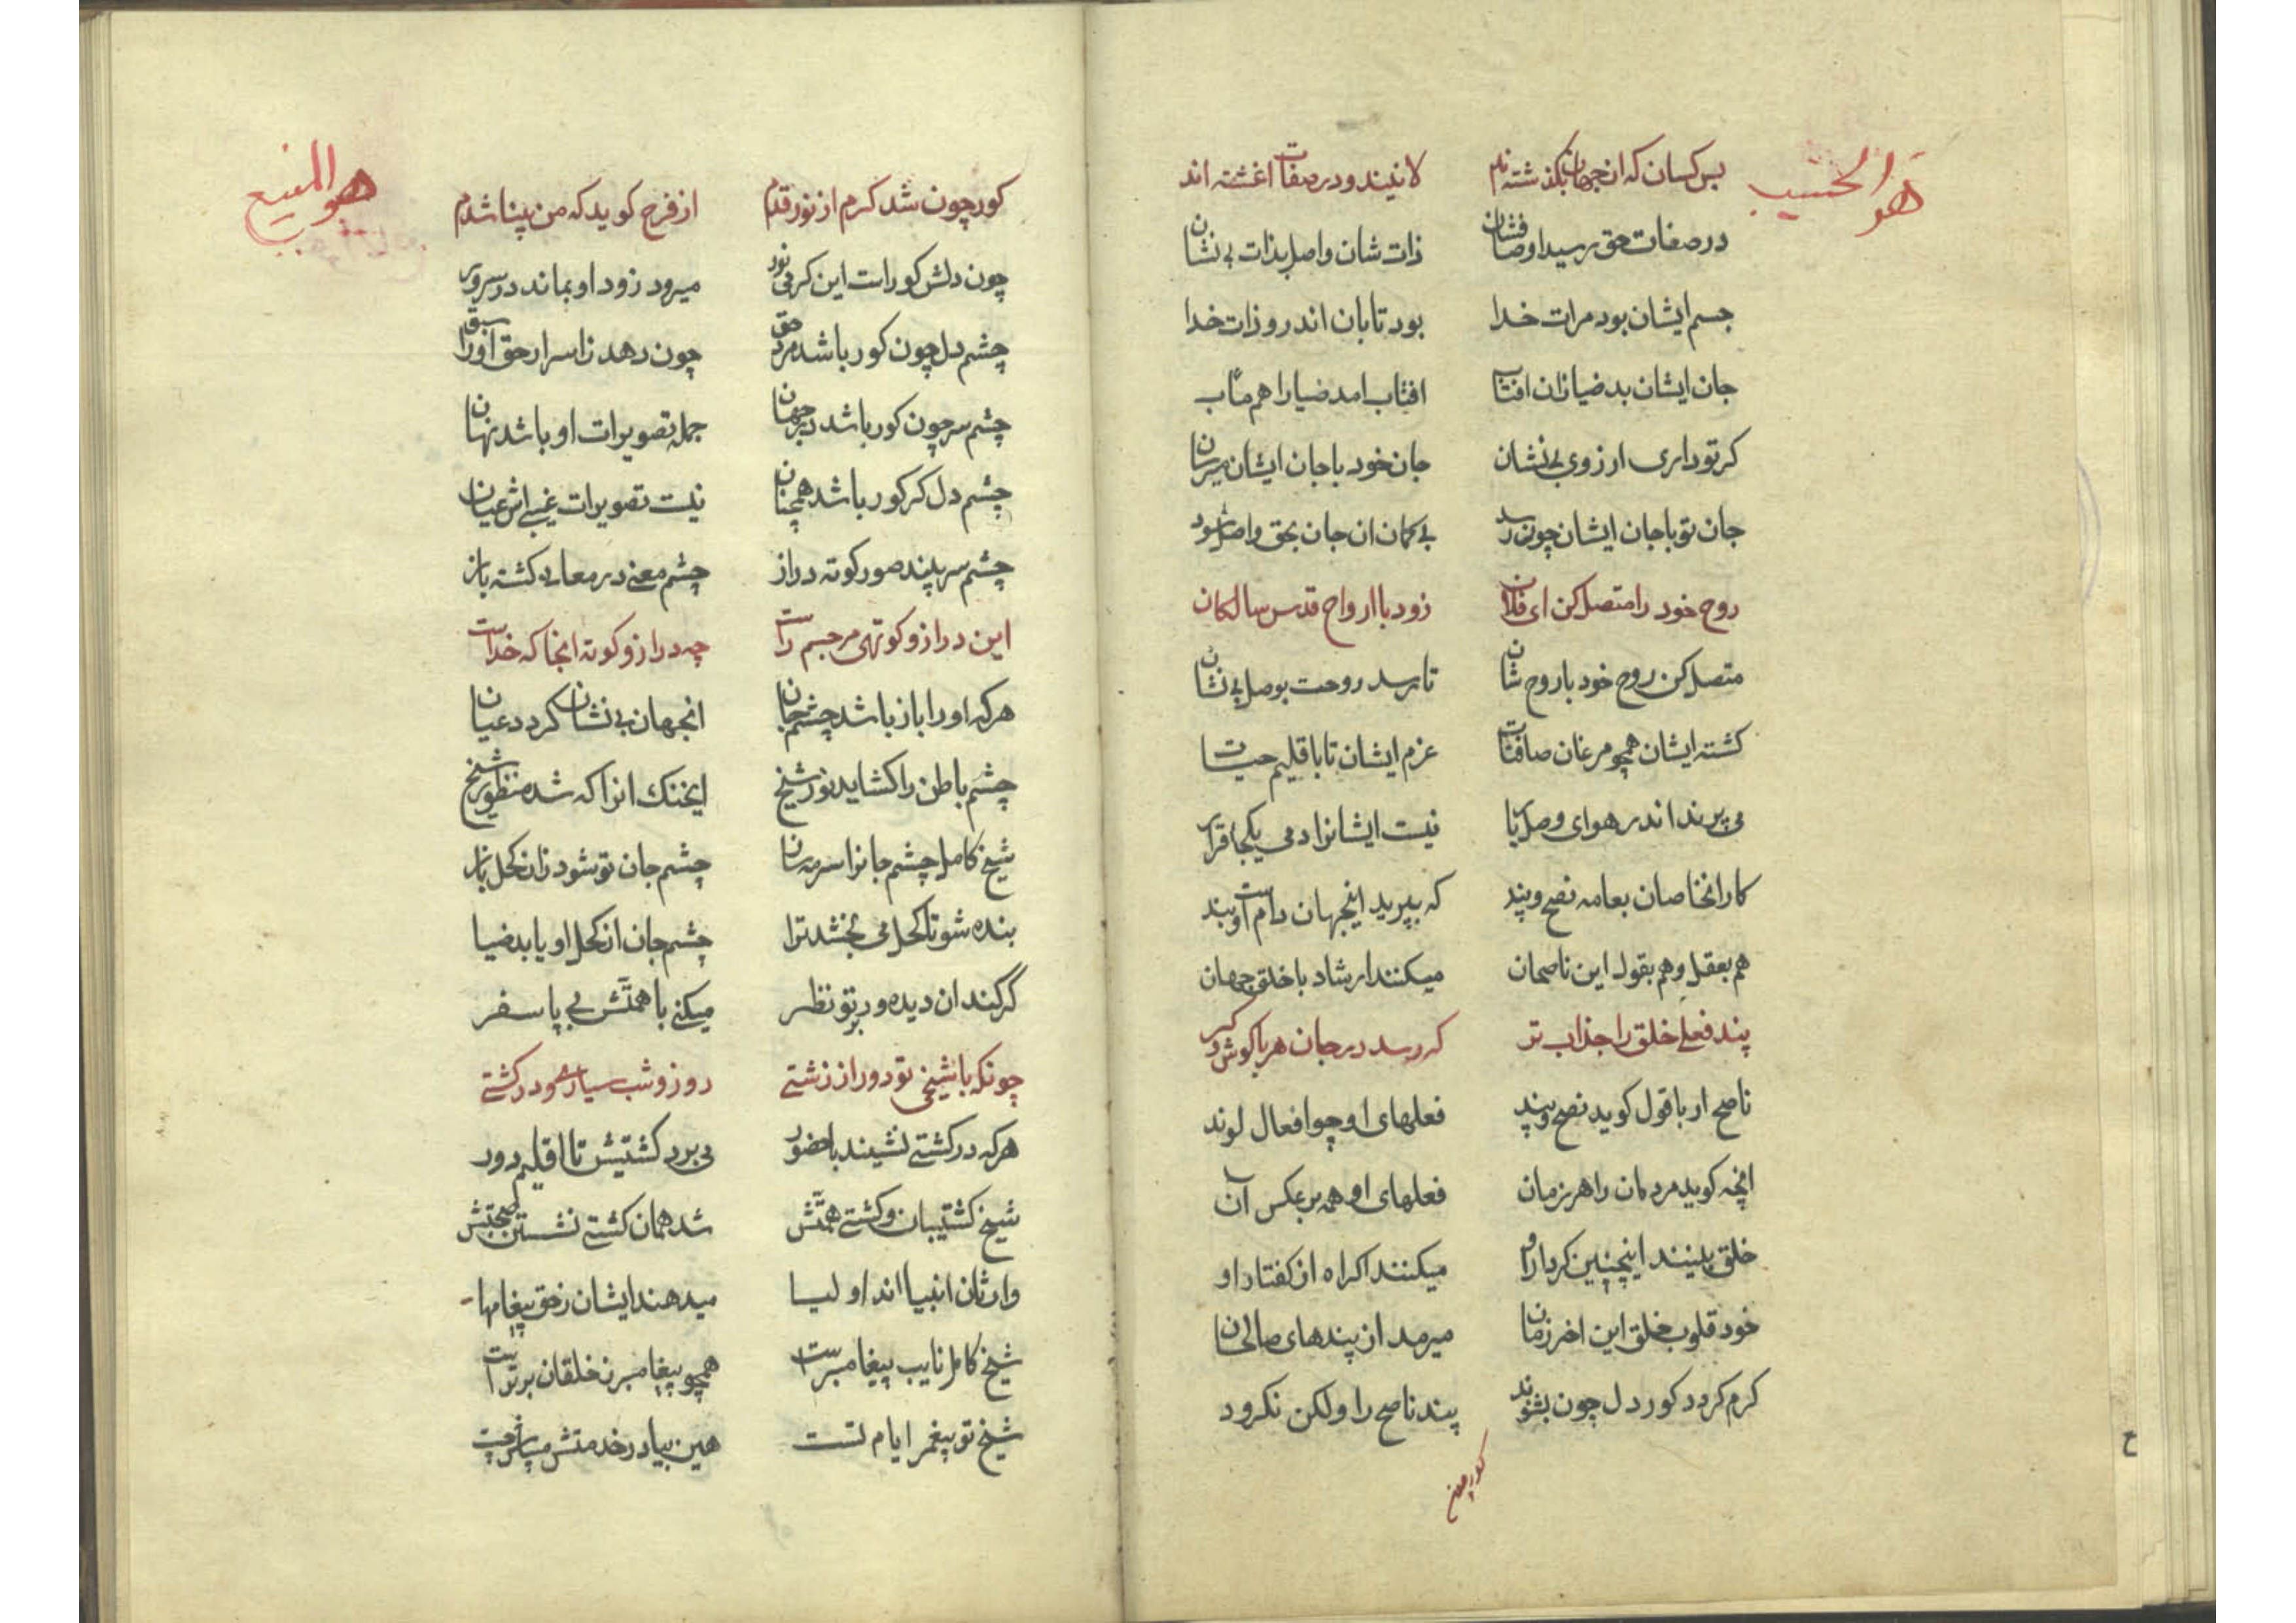 هو الحسیب
بس کسان که ان جهان بکذشته اند لا نیند و در صفات اغشته اند
در صفات حق رسید اوصافشان ذات شان واصل بذات بی نشان
جسم ایشان بود مرات خدا بود تابان اندرو ذات خدا
جان ایشان بد ضیا زان افتاب افتاب امد ضیا را هم مآب
کر تو داری ارزوی بی نشان جان خود با جان ایشان میرسان
جان تو با جان ایشان چون رسد بی کمان ان جان بحق واصل شود
روح خود را متصل کن ای فلان زود با ارواح قدس سالکان
متصل کن روح خود با روح شان تا رسد روحت بوصل بی نشان
کشته ایشان همچو مرغان صافات عزم ایشان تا باقلیم حیات
می پرند اندر هوای وصل یار نیست ایشانرا دمی یکجا قرار
کار انخاصان بعامه نصح و پند که بپرید اینجهان دام است و بند
هم بعقل و هم بقول این ناصحان میکنند ارشاد با خلق جهان
پند فعلی خلق را جذاب تر که رسد در جان هر با کوش و کر
ناصح ار با قول کوید نصح و پند فعلهای او چو افعال لوند
انچه کوید مردمان را هر زمان فعلهای او همه بر عکس آن
خلق بینند اینچنین کردار او میکنند اکراه از کفتار او
خود قلوب خلق این اخر زمان میرمد از پندهای صالحان
کرم کردد کور دل چون بشنود پند ناصح را ولکن نکرود
کور چون
هو المنیع
کور چون شد کرم از نور قدم از فرح کوید که من بینا شدم
چون دلش کور است این کرمی نور میرود زود او بماند در سرور
چشم دل چون کور باشد مرد حق چون دهد زاسرار حق او را سبق
چشم سر چون کور باشد در جهان جمله تصویرات او باشد نهان
چشم دل کر کور باشد همچنان نیست تصویرات غیبی اش عیان
چشم سر بیند صور کوته دراز چشم معنی در معانی کشته باز
این دراز و کوتهی مر جسم راست چه دراز و کوته انجا که خداست
هر که او را باز باشد چشم جان انجهان بی نشان کردد عیان
چشم باطن را کشاید نور شیخ ایخنک انرا که شد منظور شیخ
شیخ کامل چشم جانرا سرمه سان چشم جان تو شود زان کحل باز
بنده شو تا کحل می بخشد ترا چشم جان از کحل او یابد ضیا
گر کند ان دیده ور بر تو نظر میکنی با همتش بی پا سفر
چونکه با شیخی تو دور از زشتی روز و شب سیاره و در کشتی
هر که در کشتی نشیند با حضور می برد کشتیش تا اقلیم دور
شیخ کشتیبان و کشتی همتش شد همان کشتی نشستن صحبتش
وارثان انبیا اند اولیا میدهند ایشان زحق پیغامها
شیخ کامل نایب پیغامبر است همچو پیغامبر ز خلقان برتر است
شیخ تو پیغمبر ایام تست هین بیا در خدمتش میباش چست